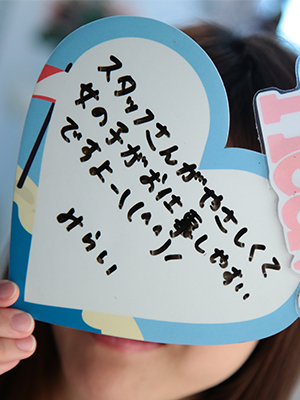 スタッフさんがやさしくて
女の子がお仕事しやすい
ですよー!(^^)!
みらい